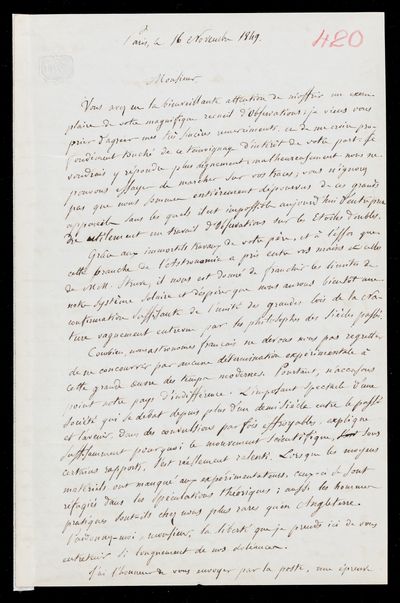 Paris, le 16 Novembre 1849.
420
Monsieur
Vous avez eu la bienveillante attention de m'offrir un exem-
plaire de votre magnifique recueil d'observations; je viens vous
prier d'agréer mes très sincères remerciments, et de me croire pro-
fondément touché de ce témoignage d'intérêt de votre part. Je
voudrais y répondre plus dignement; malheureusement nous ne
pouvons essayer de marcher sur vos traces; vous n'ignorez
pas que nous sommes entièrement dépourvus de ces grands
appareils sans les quels il est impossible aujourd'hui d'entrepren-
dre utilement un travail d'observations sur les Etoiles doubles.
Grâce aux immortels travaux de votre père, et à l'essor que
cette branche de l'Astronomie a pris entre vos mains et celles
de Mr. Struve, il nous est donné de franchir les limites de
notre système solaire et d'espérer que nous aurons bientôt une
confirmation suffisante de l'unité des grandes lois de la na-
ture vaguement entrevue par les philosophes des siècles passés.
Combien, nous astronomes français ne devons nous pas regretter
de ne concourrir par aucune détermination expérimentale à
cette grande œuvre des temps modernes. Pourtant, n'accusons
point notre pays d'indifférence. L'imposant spectacle d'une
société qui se débat depuis plus d'un demi siècle entre le passé
et l'avenir, dans des convulsions par fois effroyables, explique
suffisamment pourquoi le mouvement scientifique, sous
certains rapports, s'est réellement ralenti. Lorsque les moyens
matériels ont manqué aux expérimentateurs, ceux-ci se sont
réfugiés dans les spéculations théoriques; aussi les hommes
pratiques sont-ils chez nous plus rares qu'en Angleterre.
Pardonnez-moi, monsieur, la liberté que je prends ici de vous
entretenir si longuement de nos doléances.
J'ai l'honneur de vous envoyer par la poste, une épreuve